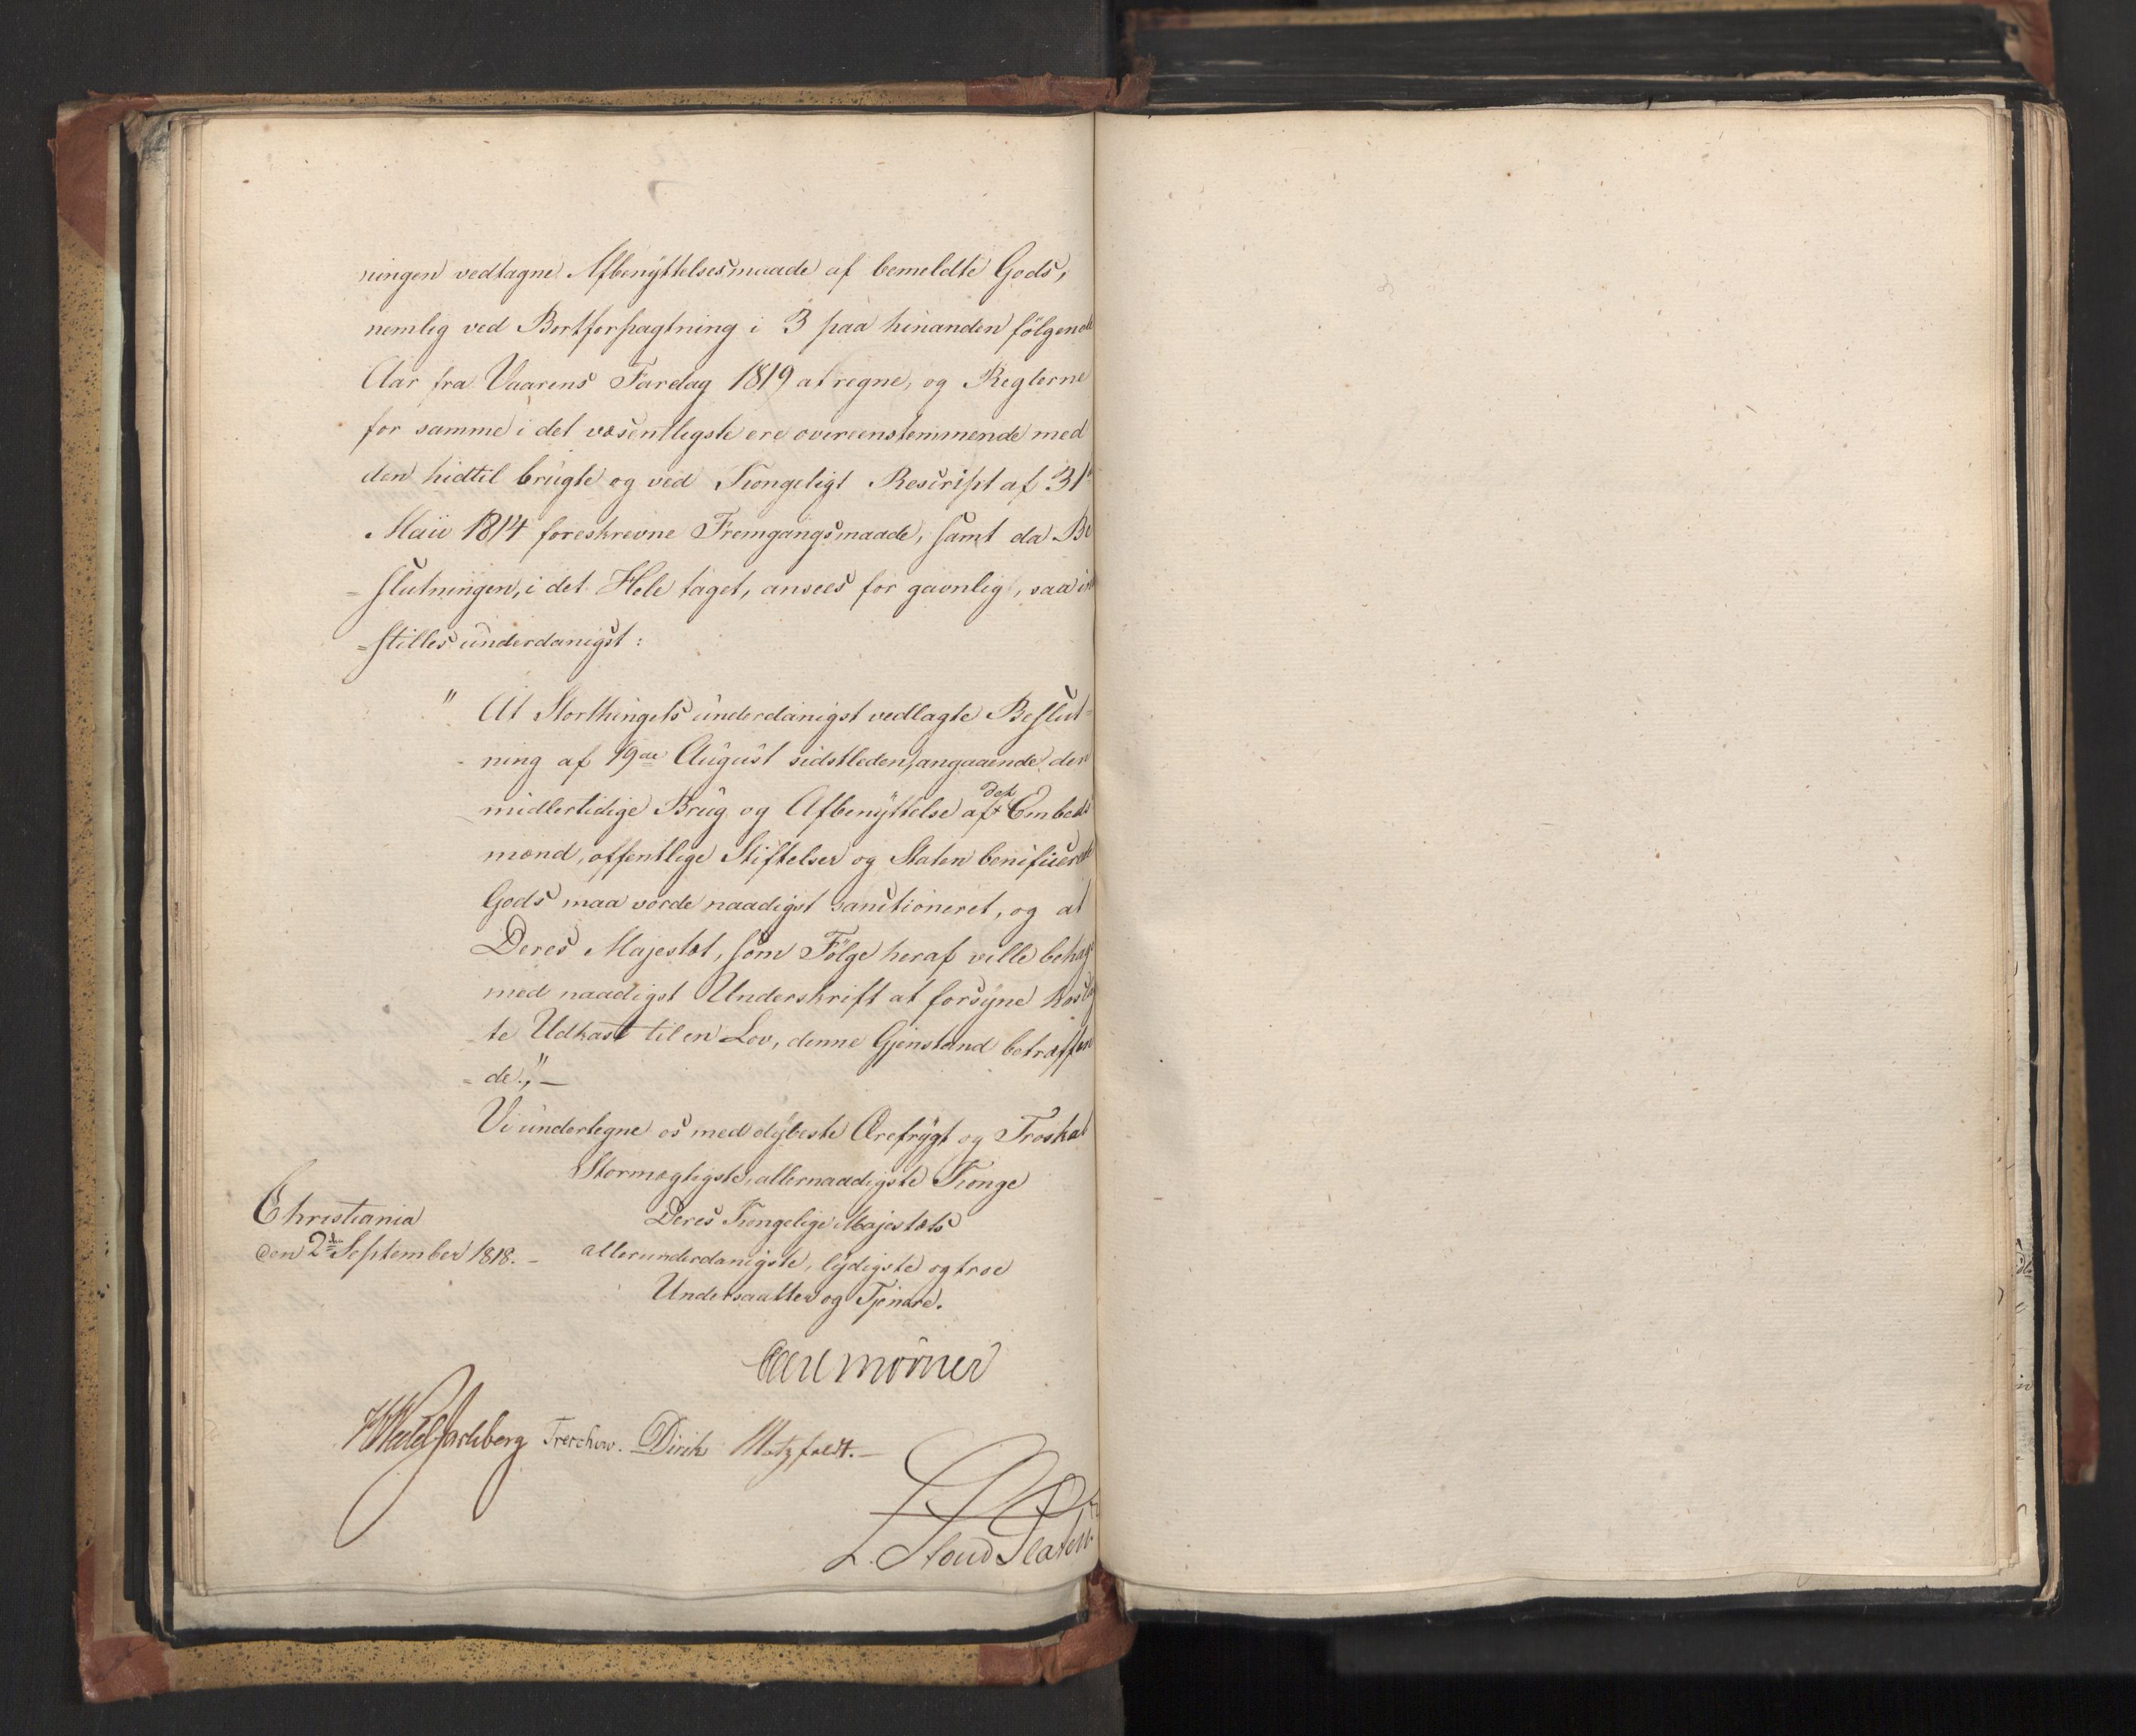 ningen vedtagne Afbenÿttelsesmaade af bemeldte Gods,
nemlig ved Bortforpagtning i 3 paa hinanden fölgende
Aar fra Vaarens Faredag 1819 at regne, og Reglerne
for samme i det væsentligste ere overeenstemmende med
den hidtil brugte og ved Kongeligt Rescript af 31te
Maii 1814 foreskrevne Fremgangsmaade, samt da Be
=slutningen, i det Hele taget, ansees for gavnlig, saa ind
=stilles underdanigst:
" At Storthingets underdanigst vedlagte Beslut=
- ning af 19de August sidstleden, angaaende den
midlertidige Brug og Afbenÿttelse af det Embeds
mænd, offentlige Stiftelser og Staten benificerede
Gods maa vorde naadigst sanctioneret, og at
Deres Majestæt, som Fölge heraf ville behage
med naadigst Underskrift at forsÿne hoslag
te Udkast til en Lov, denne Gjenstand betræffen
= de." —
Vi undertegne os med dÿbeste Ærefrÿgt og Troskab
Stormægtigste, allernaadigste Konge
Christiania
Deres Kongelige Majestæts
den 2den September 1818. -
allerunderdanigste, lÿdigste og troe
Undersaatter og Tjenere.
Carl Mörner
HWedel Jarlsberg Treschow. Diriks Motzfeldt. —
L. Stoud Platou